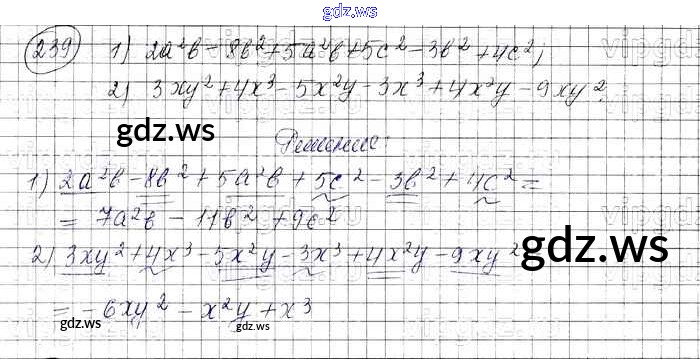 gdz.ws
239 1) 2a²b - 8b² + 5a²b + 5c² - 3b² + 4c²;
2) 3xy² + 4x³ - 5x²y - 3x³ + 4x²y - 9xy².
gdz.ws
Решение:
1) 2a²b - 8b² + 5a²b + 5c² - 3b² + 4c² =
= 7a²b - 11b² + 9c²
2) 3xy² + 4x³ - 5x²y - 3x³ + 4x²y - 9xy²
gdz.ws
= -6xy² - x²y + x³
gdz.ws gdz.ws